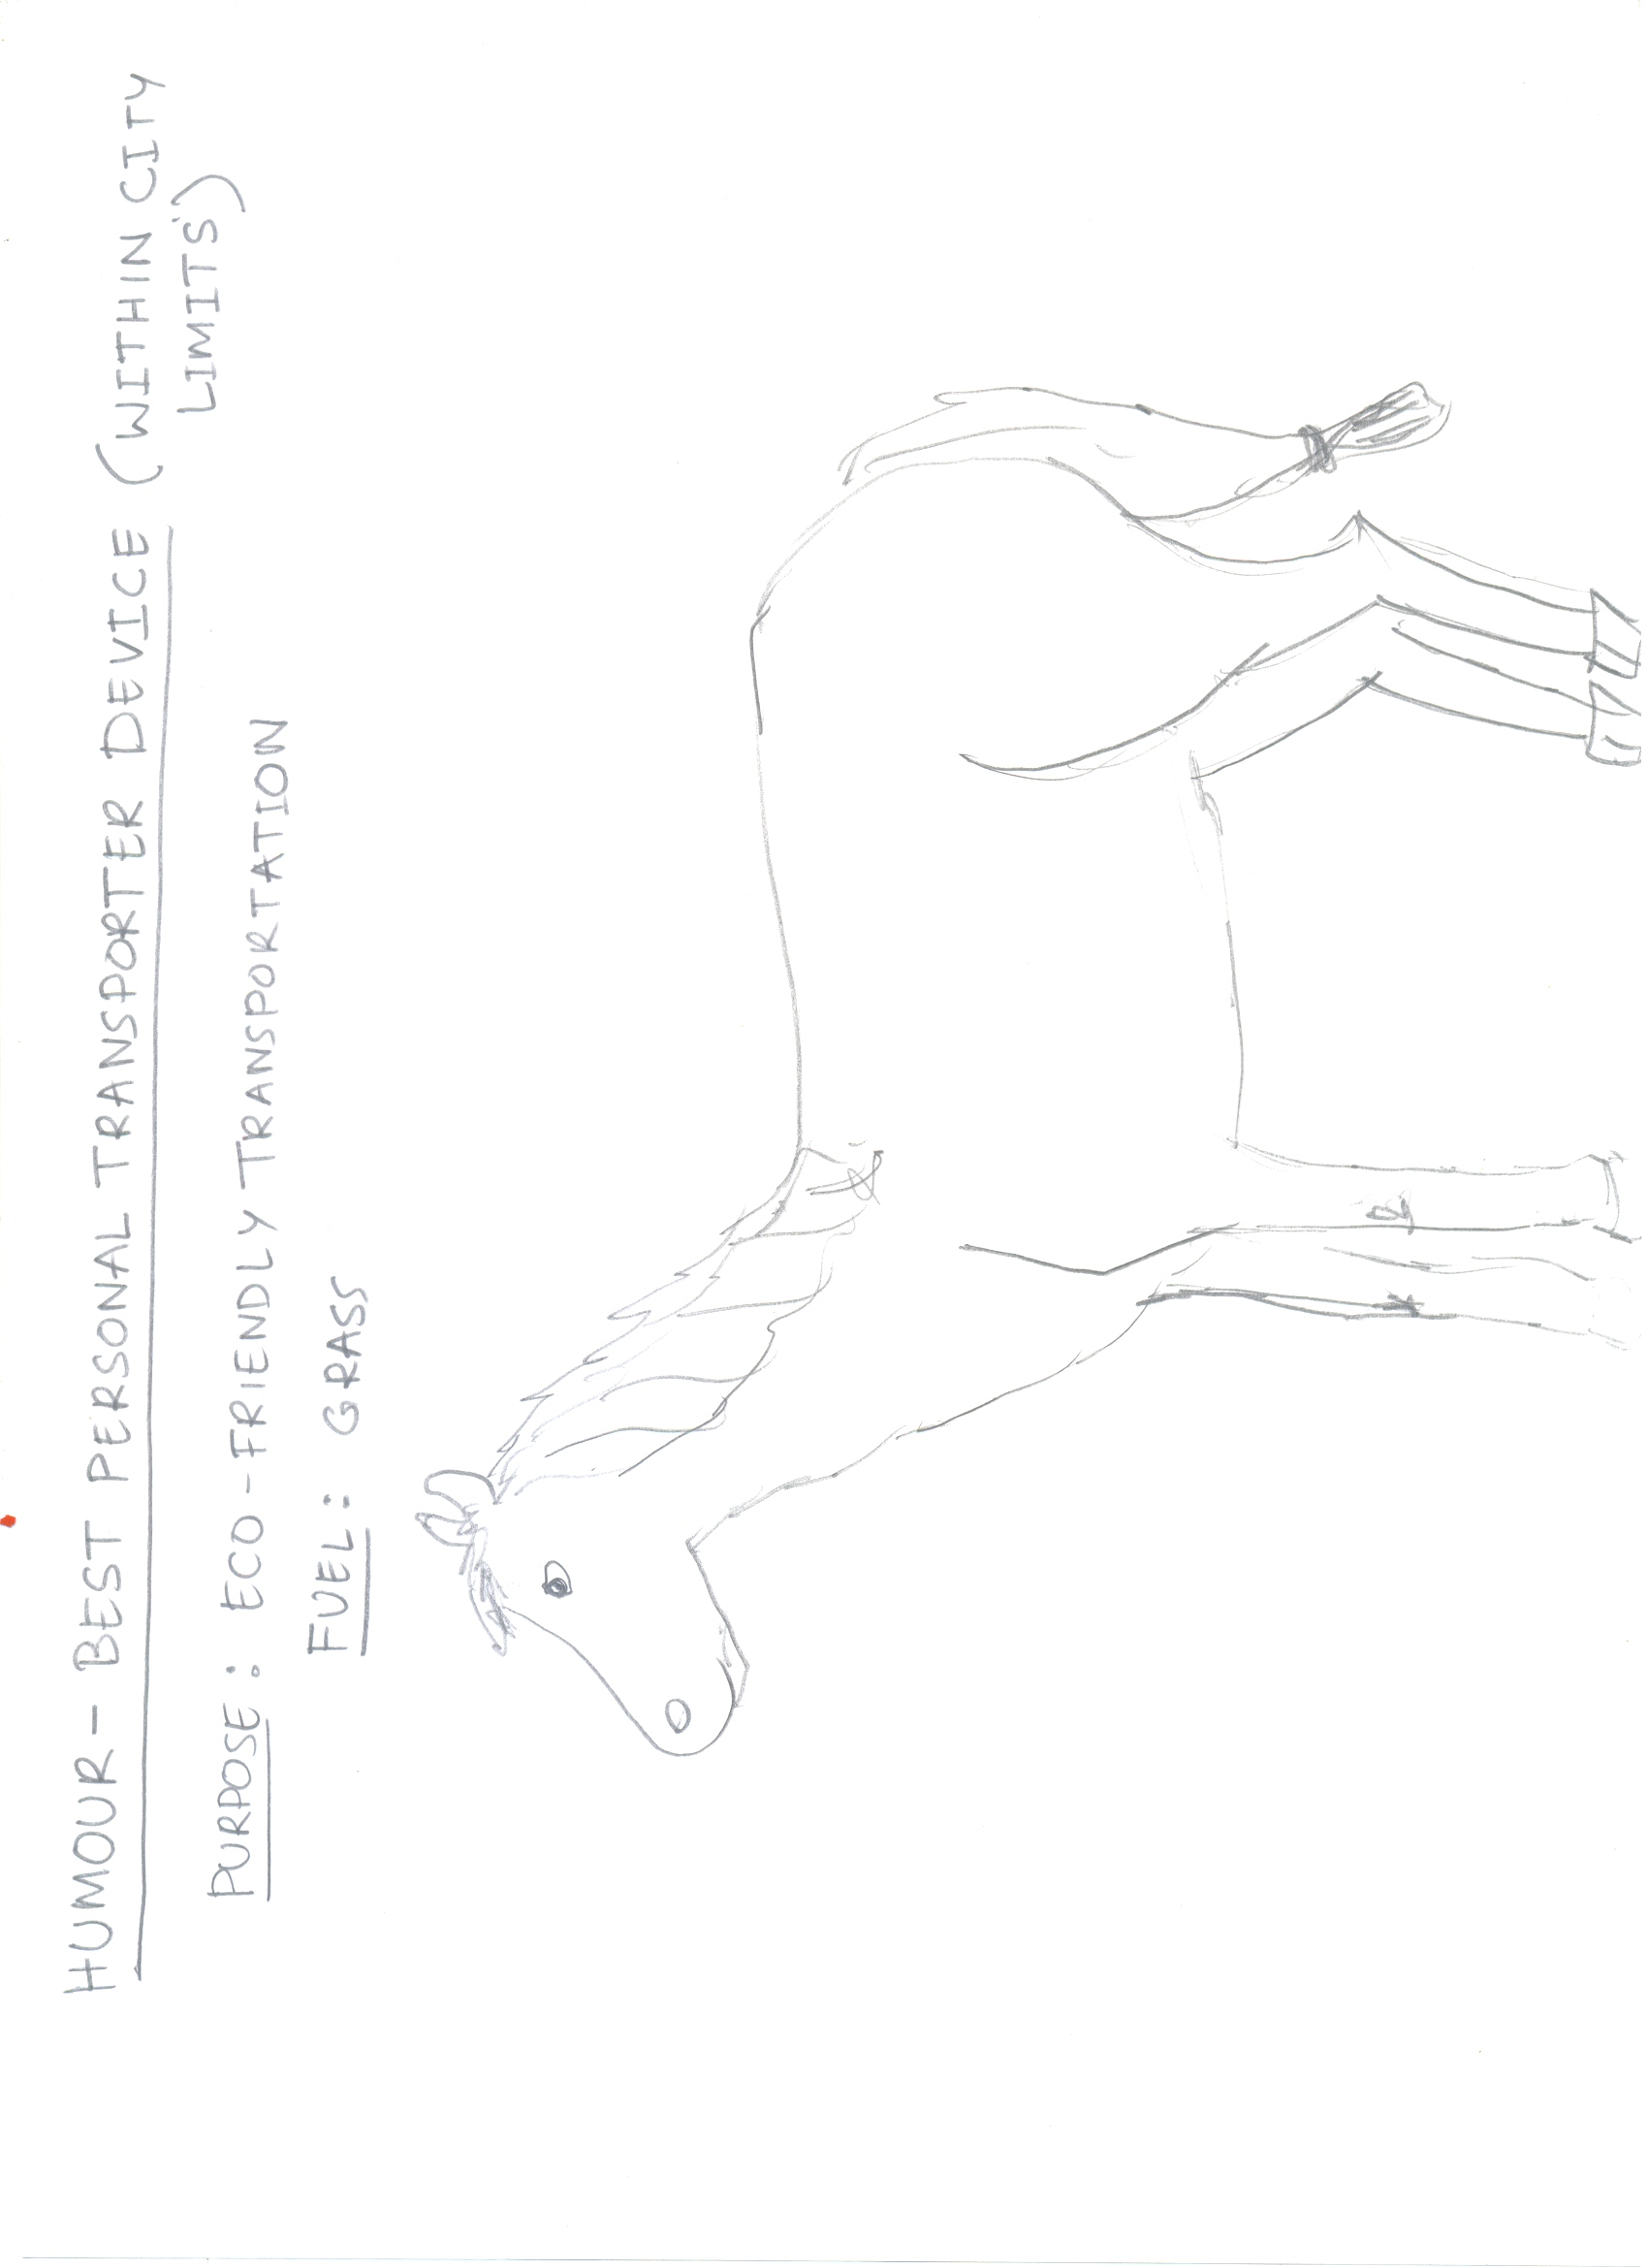 HUMOUR - BEST PERSONAL TRANSPORTER DEVICE (WITHIN CITY
LIMITS)
PURPOSE: ECO-FRIENDLY TRANSPORTATION
FUEL: GRASS